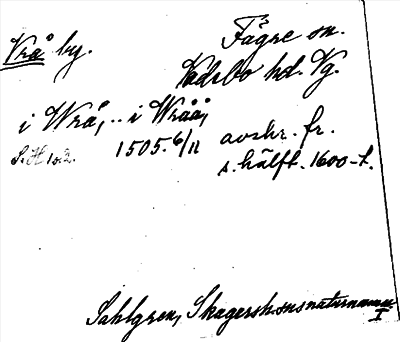 Vrå by.
Fägre sn.
Vadsbo hd. Vg.
i Wrå, .. i Wråå,
1505. 6/11 avskr. fr.
s. hälft. 1600-t.
Sahlgren, Skagershonsnaturnamn
I